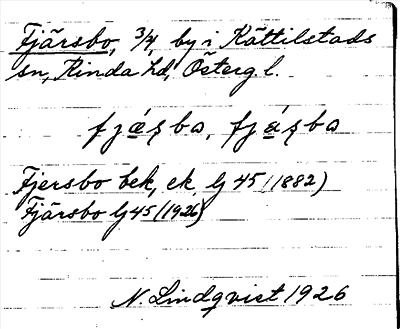 Fjärsbo, 3/4, by i Kättilstads
sn, Kinda hd, Österg. l.
fjæʂbo, fjáʂbo
Fjersbo bek, ek, Lj 45 (1882)
Fjärsbo Lj 45 (1926)
N. Lindqvist 1926